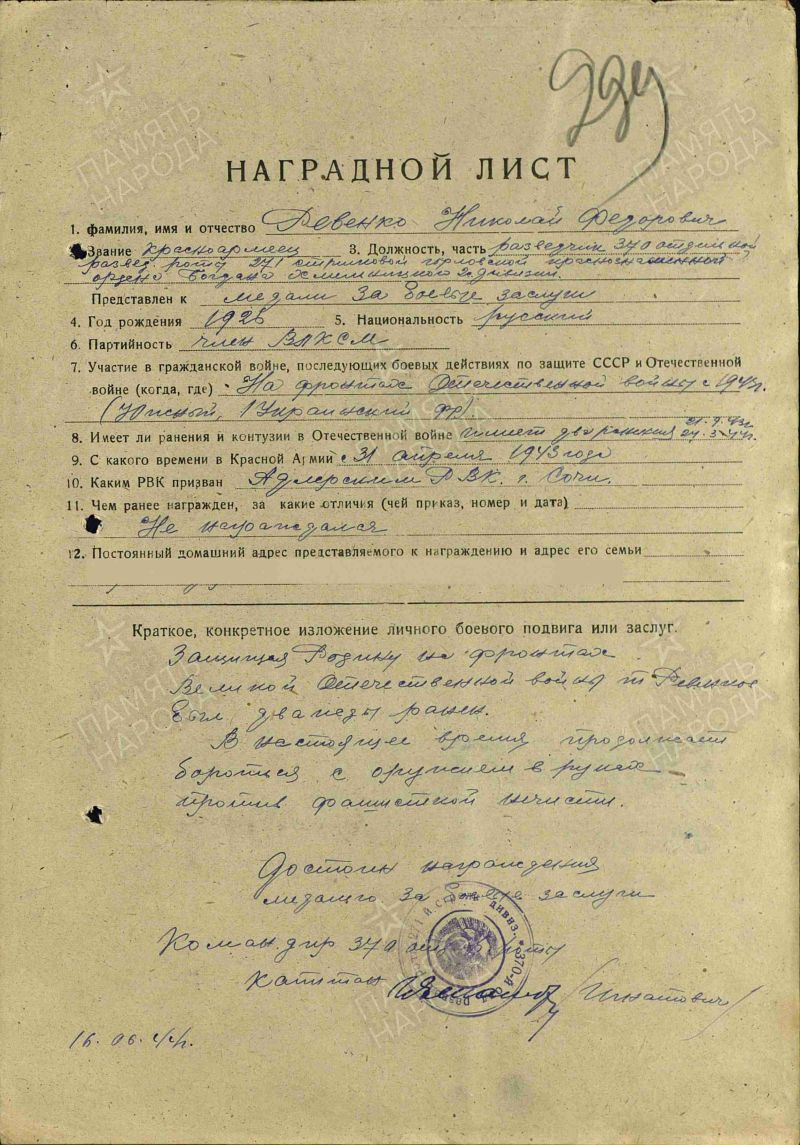 НАГРАДНОЙ ЛИСТ
1. фамилия, имя и отчество Ревенко Николай Федорович
Звание красноармеец 3. Должность, часть разведчик 370 отдельной
развед роты 241 стрелковой
ордена Богдана Хмельницкого дивизии.
Представлен к медали За боевые заслуги
4. Год рождения 1926 5. Национальность русский
6. Партийность член ВЛКСМ
7. Участие в гражданской войне, последующих боевых действиях по защите СССР и Отечественной
войне (когда, где) На фронтах Отечественной войны с 1943г.
(Южный, 1 Украинский фр).
8. Имеет ли ранения и контузии в Отечественной войне имеет два ранения
9. С какого времени в Красной Армии с 31 апреля 1943 года
10. Каким РВК призван Адлерским РВК г. Сочи
11. Чем ранее награжден, за какие отличия (чей приказ, номер и дата)
Не награждался
12. Постоянный домашний адрес представляемого к награждению и адрес его семьи
Краткое, конкретное изложение личного боевого подвига или заслуг.
Защищая Родину на фронтах
Великой Отечественной войны т Ревенко
был дважды ранен.
В настоящее время продолжает
бороться с оружием в руках
против фашисткой нечисти.
Достоин награждения
медалью За боевые заслуги
Командир 370 роты
капитан /Игнатович/
16.06.44г.
ПАМЯТЬ
НАРОДА